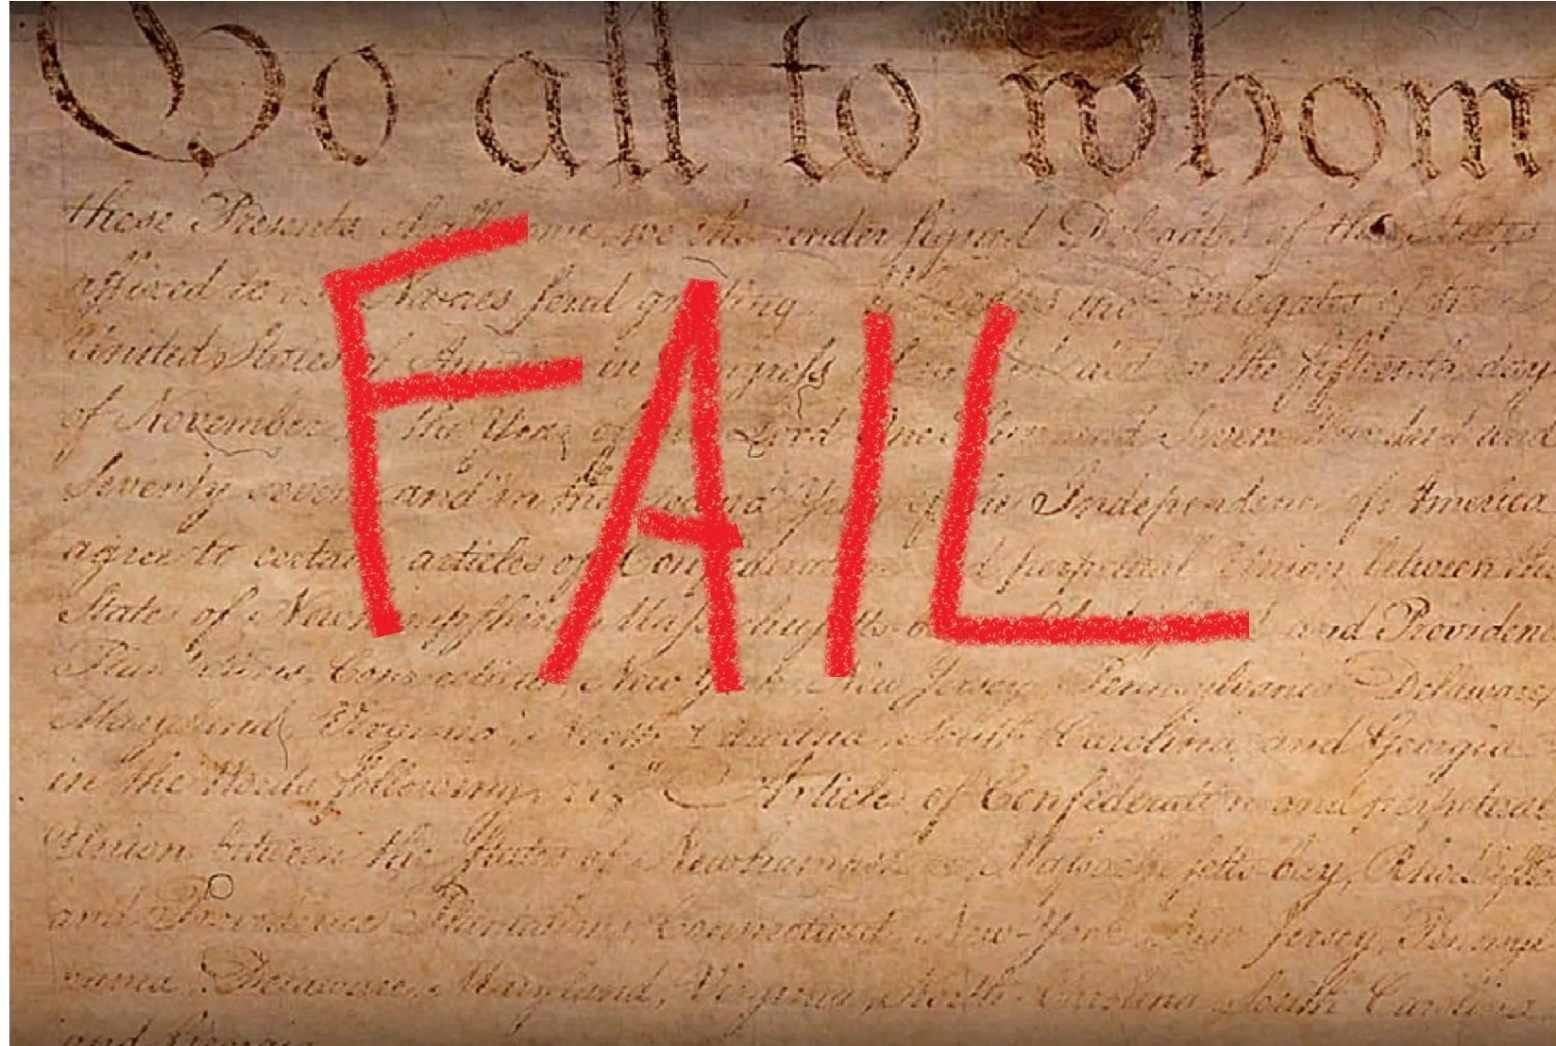 To all to whom
these Presents shall come, we the under signed Delegates of the States
affixed to our Names send greeting. Whereas the Delegates of the
United States of America in Congress assembled did on the fifteenth day
of November in the Year of our Lord One Thousand Seven Hundred and
Seventy seven and in the Second Year of the Independence of America
agree to certain articles of Confederation and perpetual Union between the
States of Newhampshire, Massachusetts bay, and Providence
Plantations, Connecticut, New York, New Jersey, Pennsylvania, Delaware,
Maryland, Virginia, North Carolina, South Carolina and Georgia
in the Words following, viz. "Articles of Confederation and perpetual
Union between the States of Newhampshire, Massachusetts-bay, Rhode
and Providence Plantations, Connecticut, New-York, New Jersey, Pennsyl
vania, Delaware, Maryland, Virginia, North Carolina, South Carolina
and Georgia
FAIL